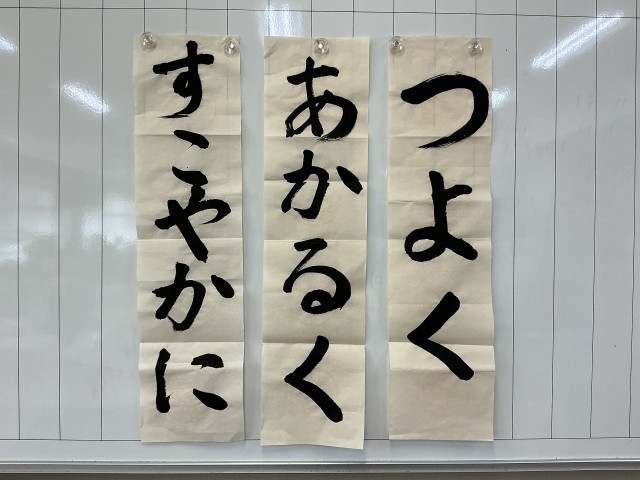 つよく
あかるく
すこやかに